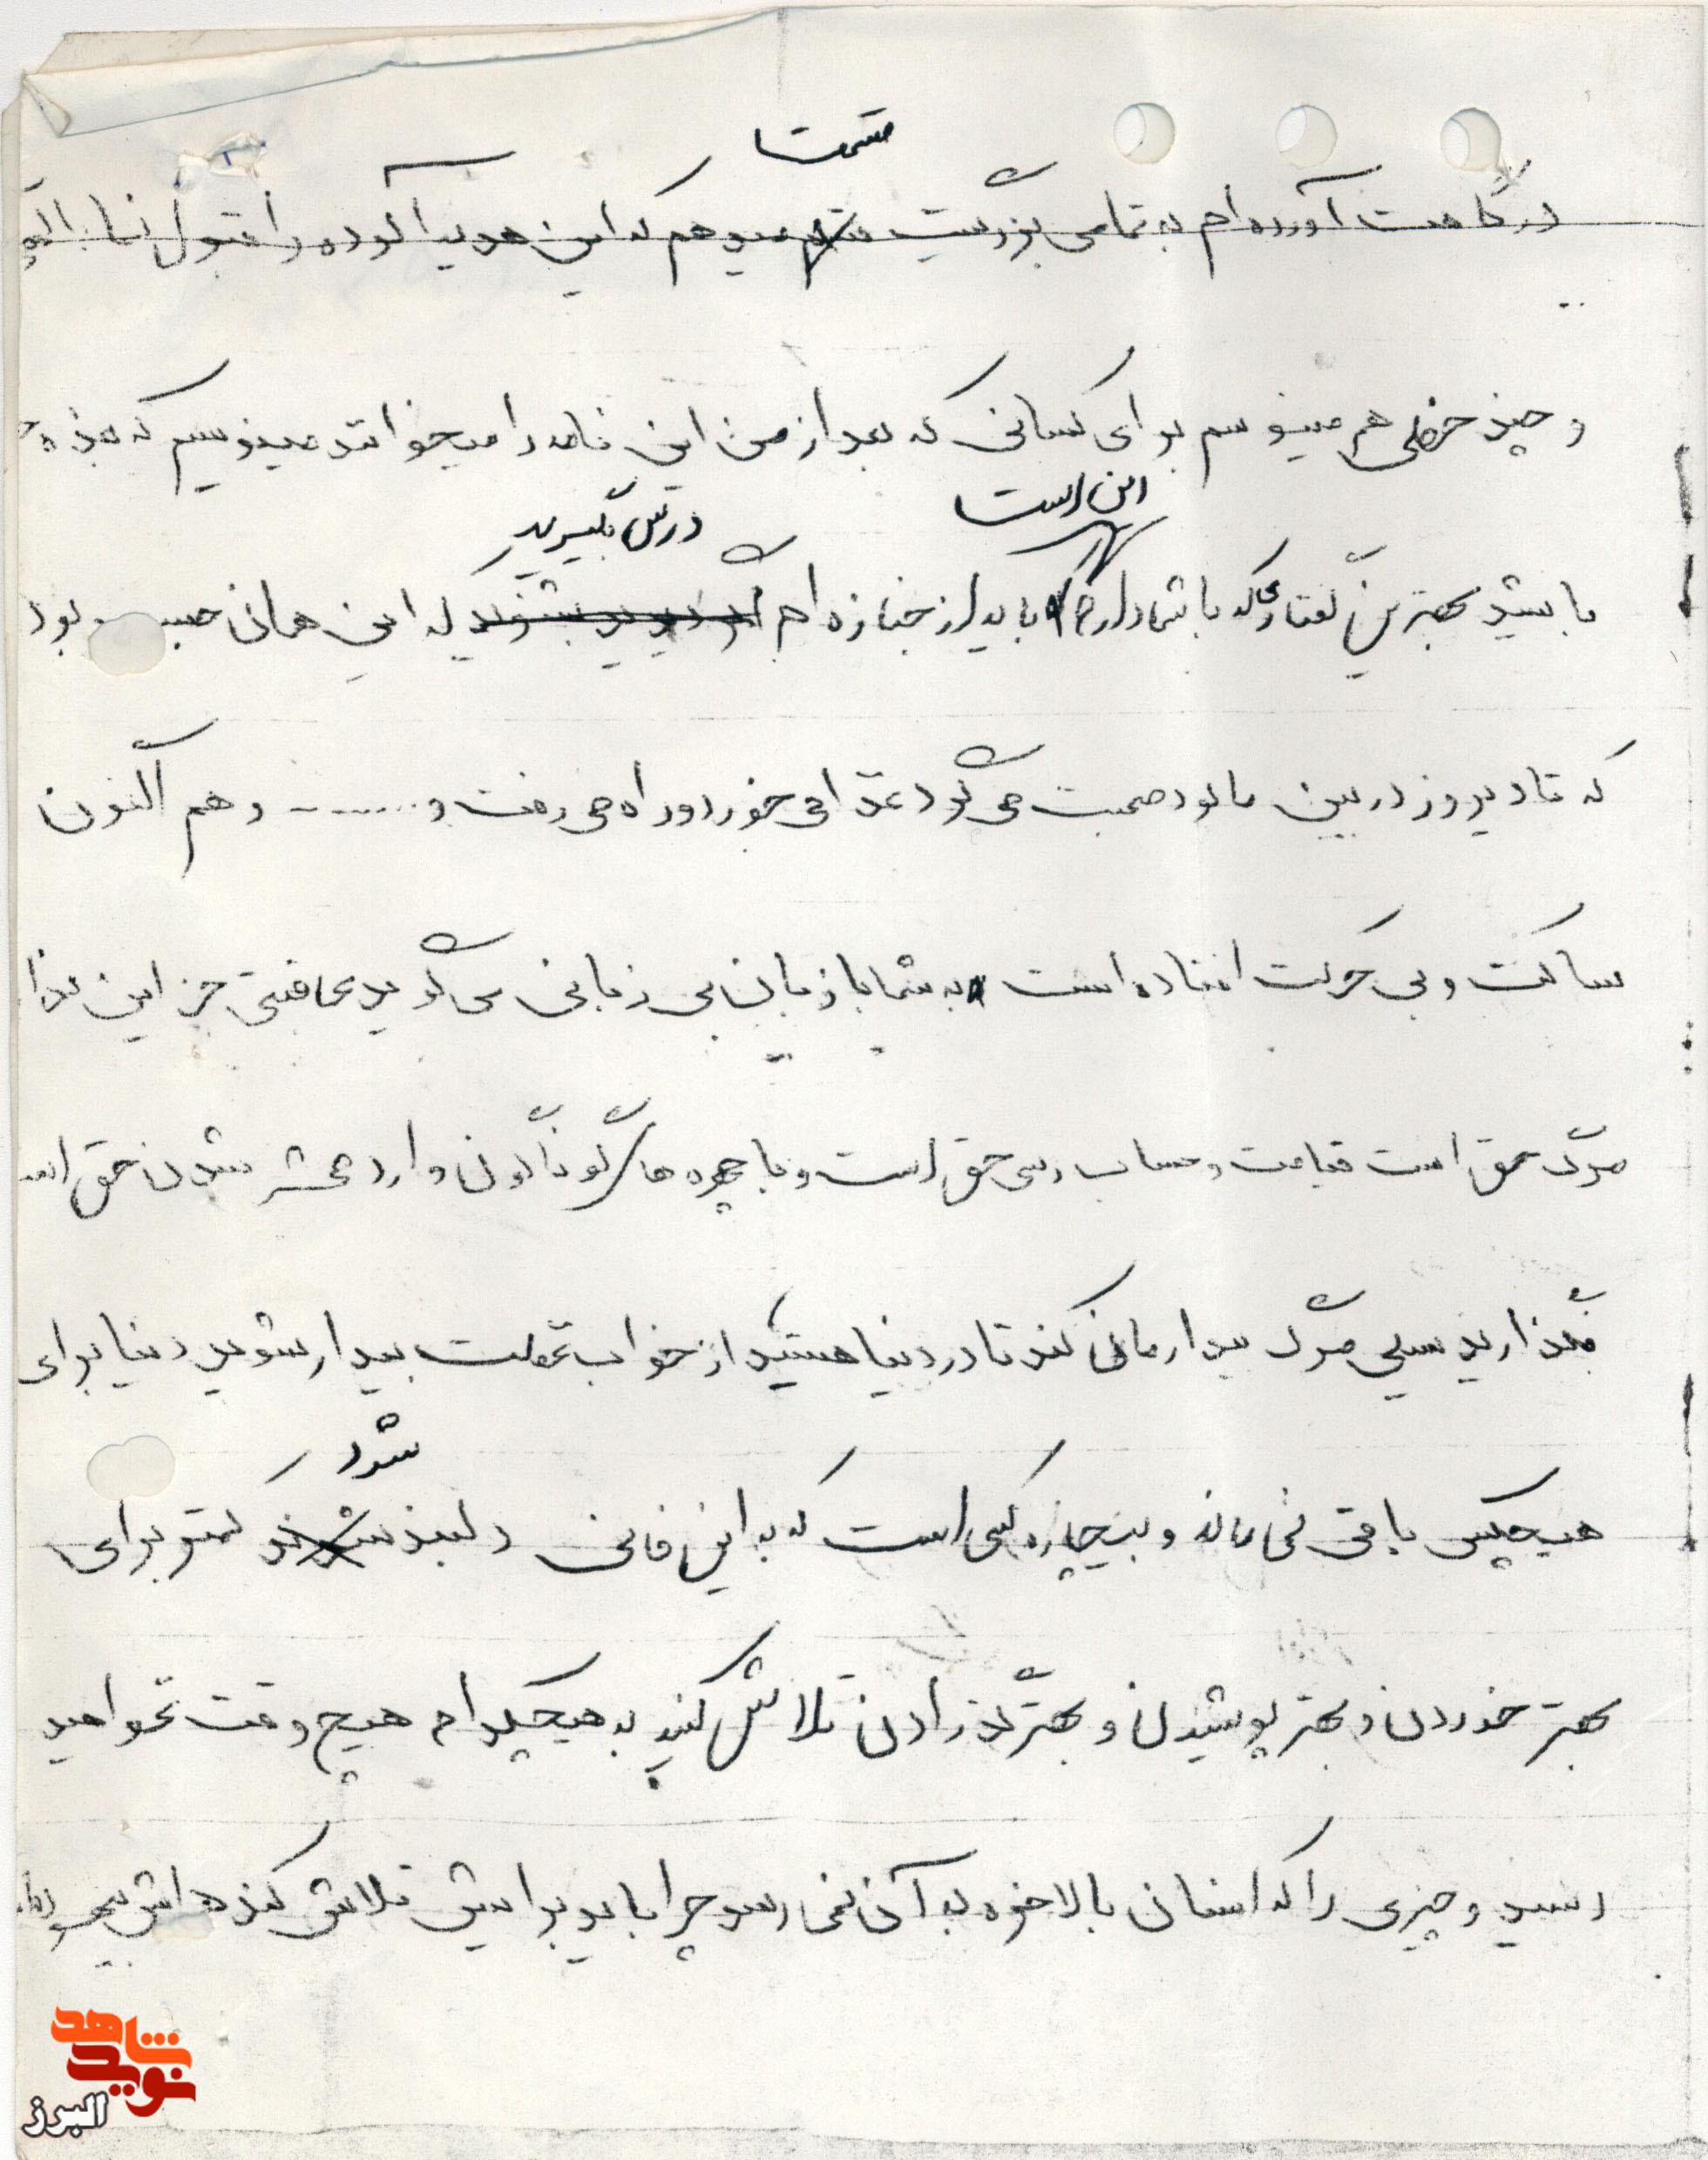 قسمت
درگاهت آورده‌ام به تمامی بزرگیت میدهم که این هدیه آلوده را قبول نما
و چند خطی هم مینویسم برای کسانی که بعد از من این نامه را میخوانند مینویسم که بنده
این است درس بگیرید
باشید بهترین گفتاری که با شما دارم باید از جنازه‌ام که این همانی بود
که تا دیروز در بین ما بود صحبت می‌کرد غذا می خورد و راه می رفت و ........ و هم اکنون
ساکت و بی حرکت افتاده است به شما با زبان بی زبانی می گوید عاقبتی جز این ندا
مرگ حق است قیامت و حساب رسی حق است و با چهره های گوناگون وارد محشر شدن حق است
نگذارید سیلی مرگ بیدارمان کند تا در دنیا هستید از خواب غفلت بیدار شوید دنیا برای
شد
هیچکس باقی نمی ماند و بیچاره کسی است که به این فانی دلبند کمتر برای
بهتر خوردن و بهتر پوشیدن و بهتر گذرادن تلاش کنید به هیچکدام هیچ وقت نخواهید
رسید و چیزی را که انسان بالاخره به آن نمی رسد چرا باید برایش تلاش کند
نوید شاهد
البرز